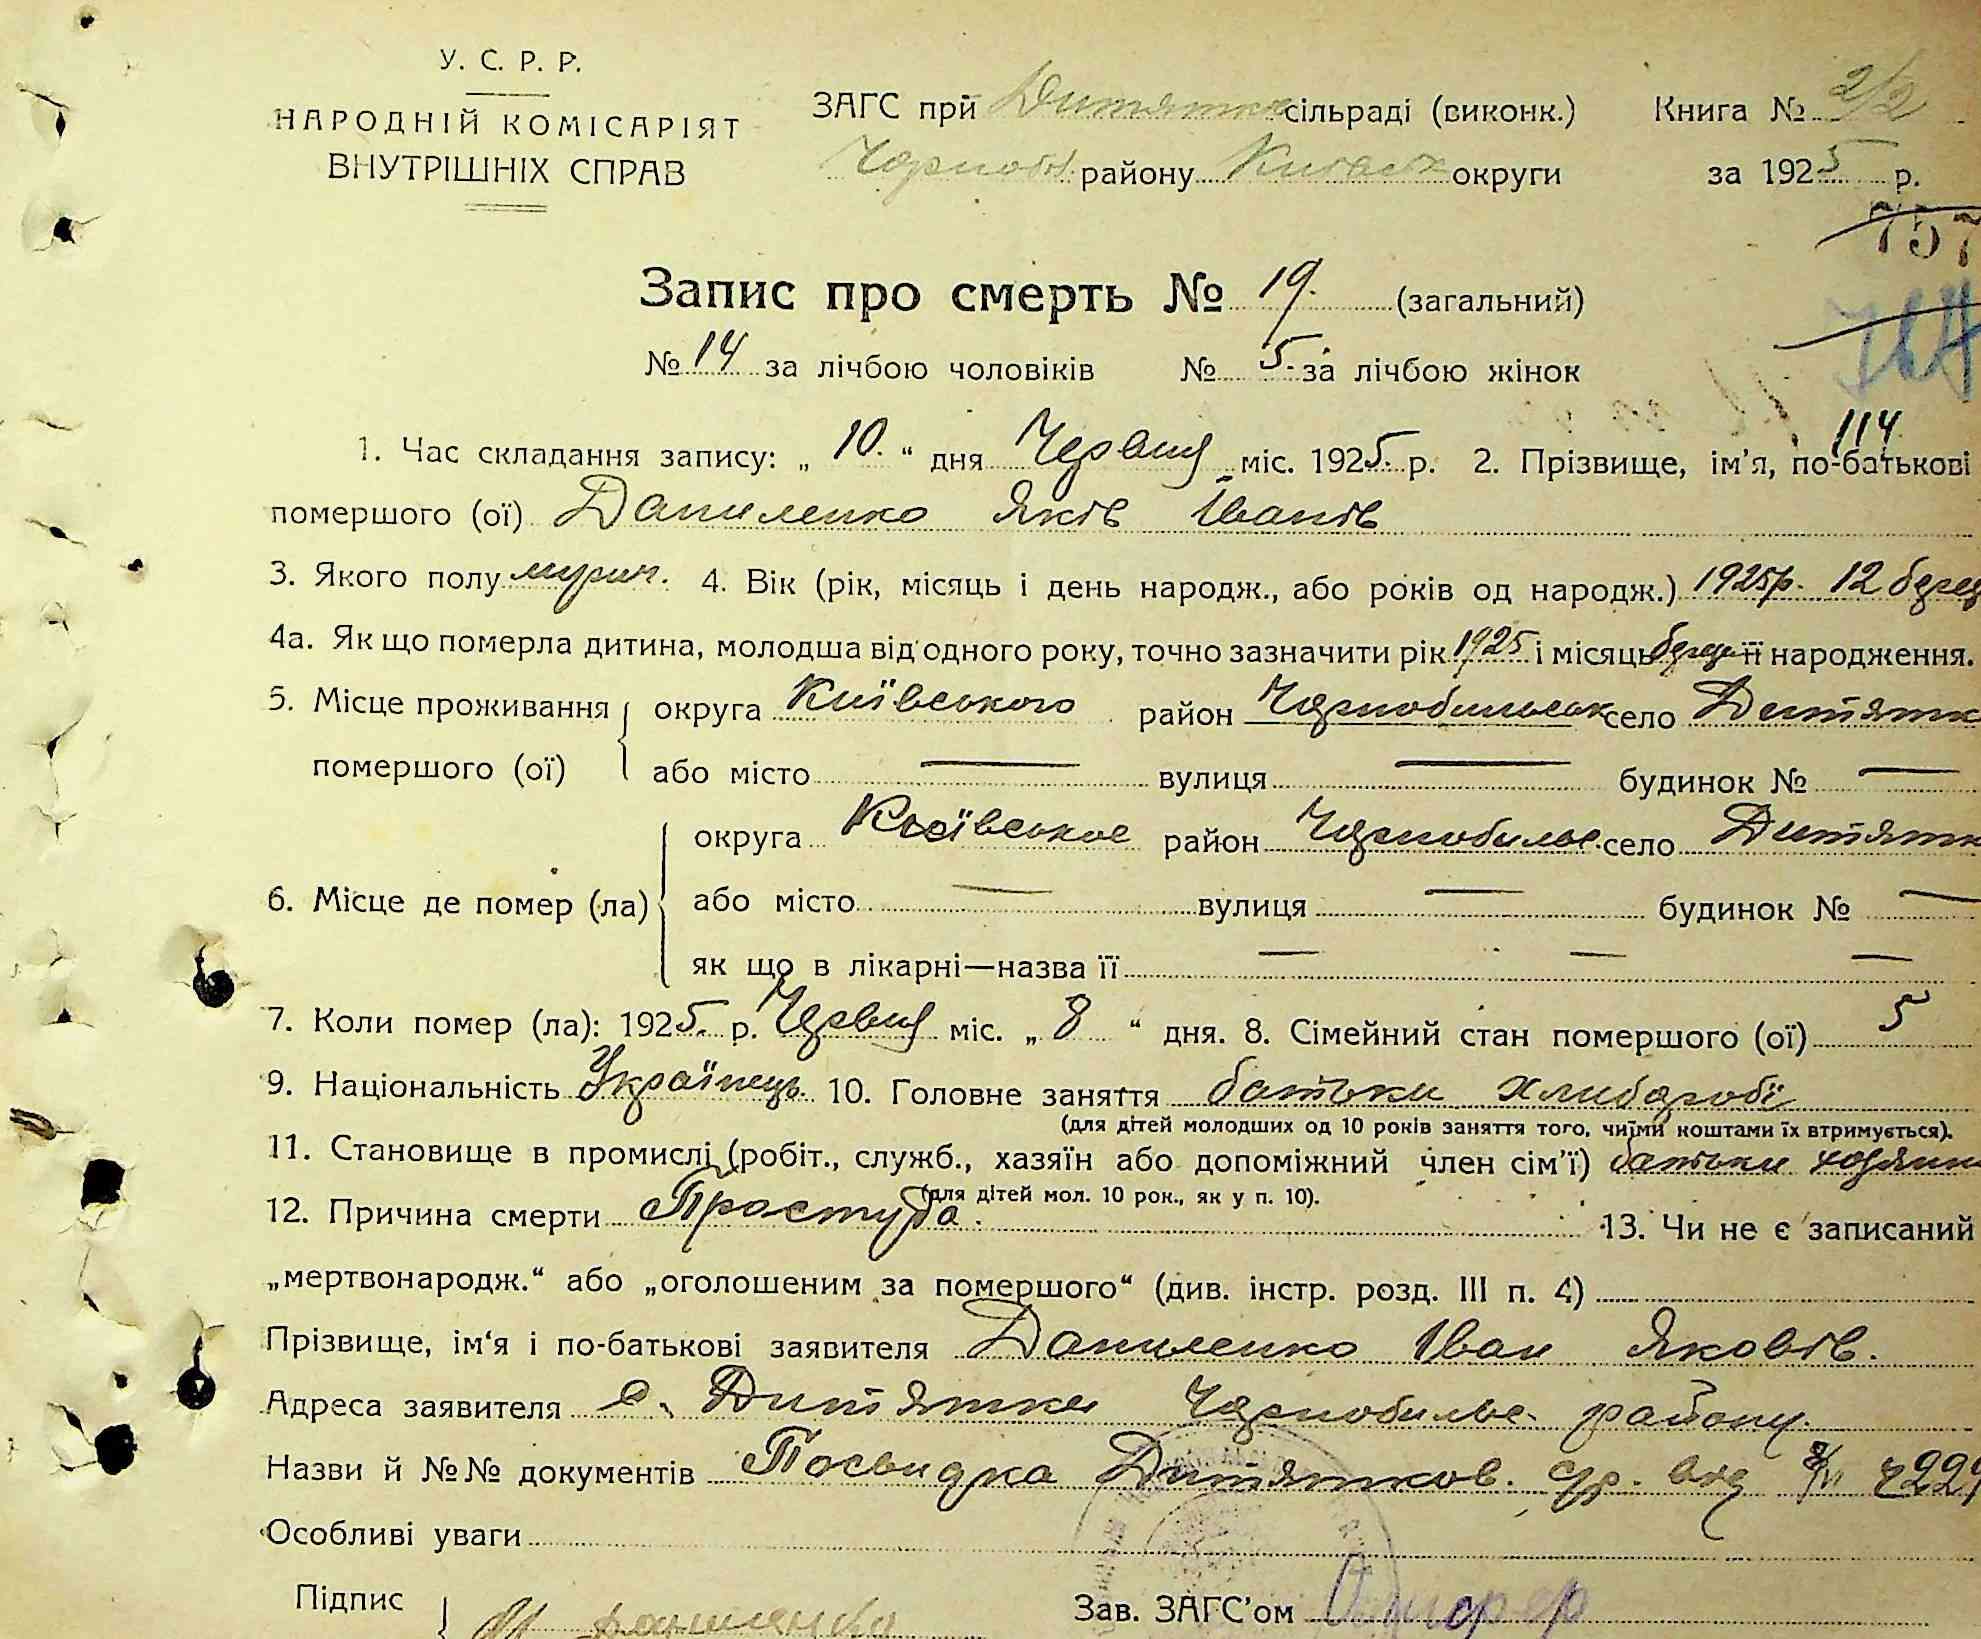 У. С. Р. Р.
НАРОДНІЙ КОМІСАРІЯТ
ВНУТРІШНІХ СПРАВ
ЗАГС при Дитятк сільраді (виконк.)
Чорноб. району Київськ округи
Книга № 2/2
за 1925 р.
757
Запис про смерть № 19. (загальний)
№ 14 за лічбою чоловіків № 5. за лічбою жінок
114
1. Час складання запису: „ 10. “ дня Червня міс. 1925. р. 2. Прізвище, ім'я, по-батькові
помершого (ої) Даниленко Яків Іванів
3. Якого полу мужич. 4. Вік (рік, місяць і день народж., або років од народж.) 1925р. 12 берез
4а. Як що померла дитина, молодша від одного року, точно зазначити рік 1925 і місяць берез її народження.
5. Місце проживання помершого (ої) округа Київського район Чорнобильськ село Дитятк
або місто — вулиця — будинок № —
6. Місце де помер (ла) округа Київськое район Чорнобильс. село Дитятк
або місто — вулиця — будинок № —
як що в лікарні—назва її — — —
7. Коли помер (ла): 1925. р. Червня міс. „ 8 “ дня. 8. Сімейний стан помершого (ої) 5
9. Національність Українець. 10. Головне заняття батьки хлибороби
(для дітей молодших од 10 років заняття того, чиїми коштами їх втримується).
11. Становище в промислі (робіт., служб., хазяїн або допоміжний член сім'ї) батьки хозяин
(для дітей мол. 10 рок., як у п. 10).
12. Причина смерти Простуда. 13. Чи не є записаний
„мертвонародж.“ або „оголошеним за помершого“ (див. інстр. розд. III п. 4)
Прізвище, ім‘я і по-батькові заявителя Даниленко Іван Яковів.
Адреса заявителя с. Дитятки Чорнобильс. району.
Назви й №№ документів Посвидка Дитятков. с/р. від
Особливі уваги
Підпис
Зав. ЗАГС'ом